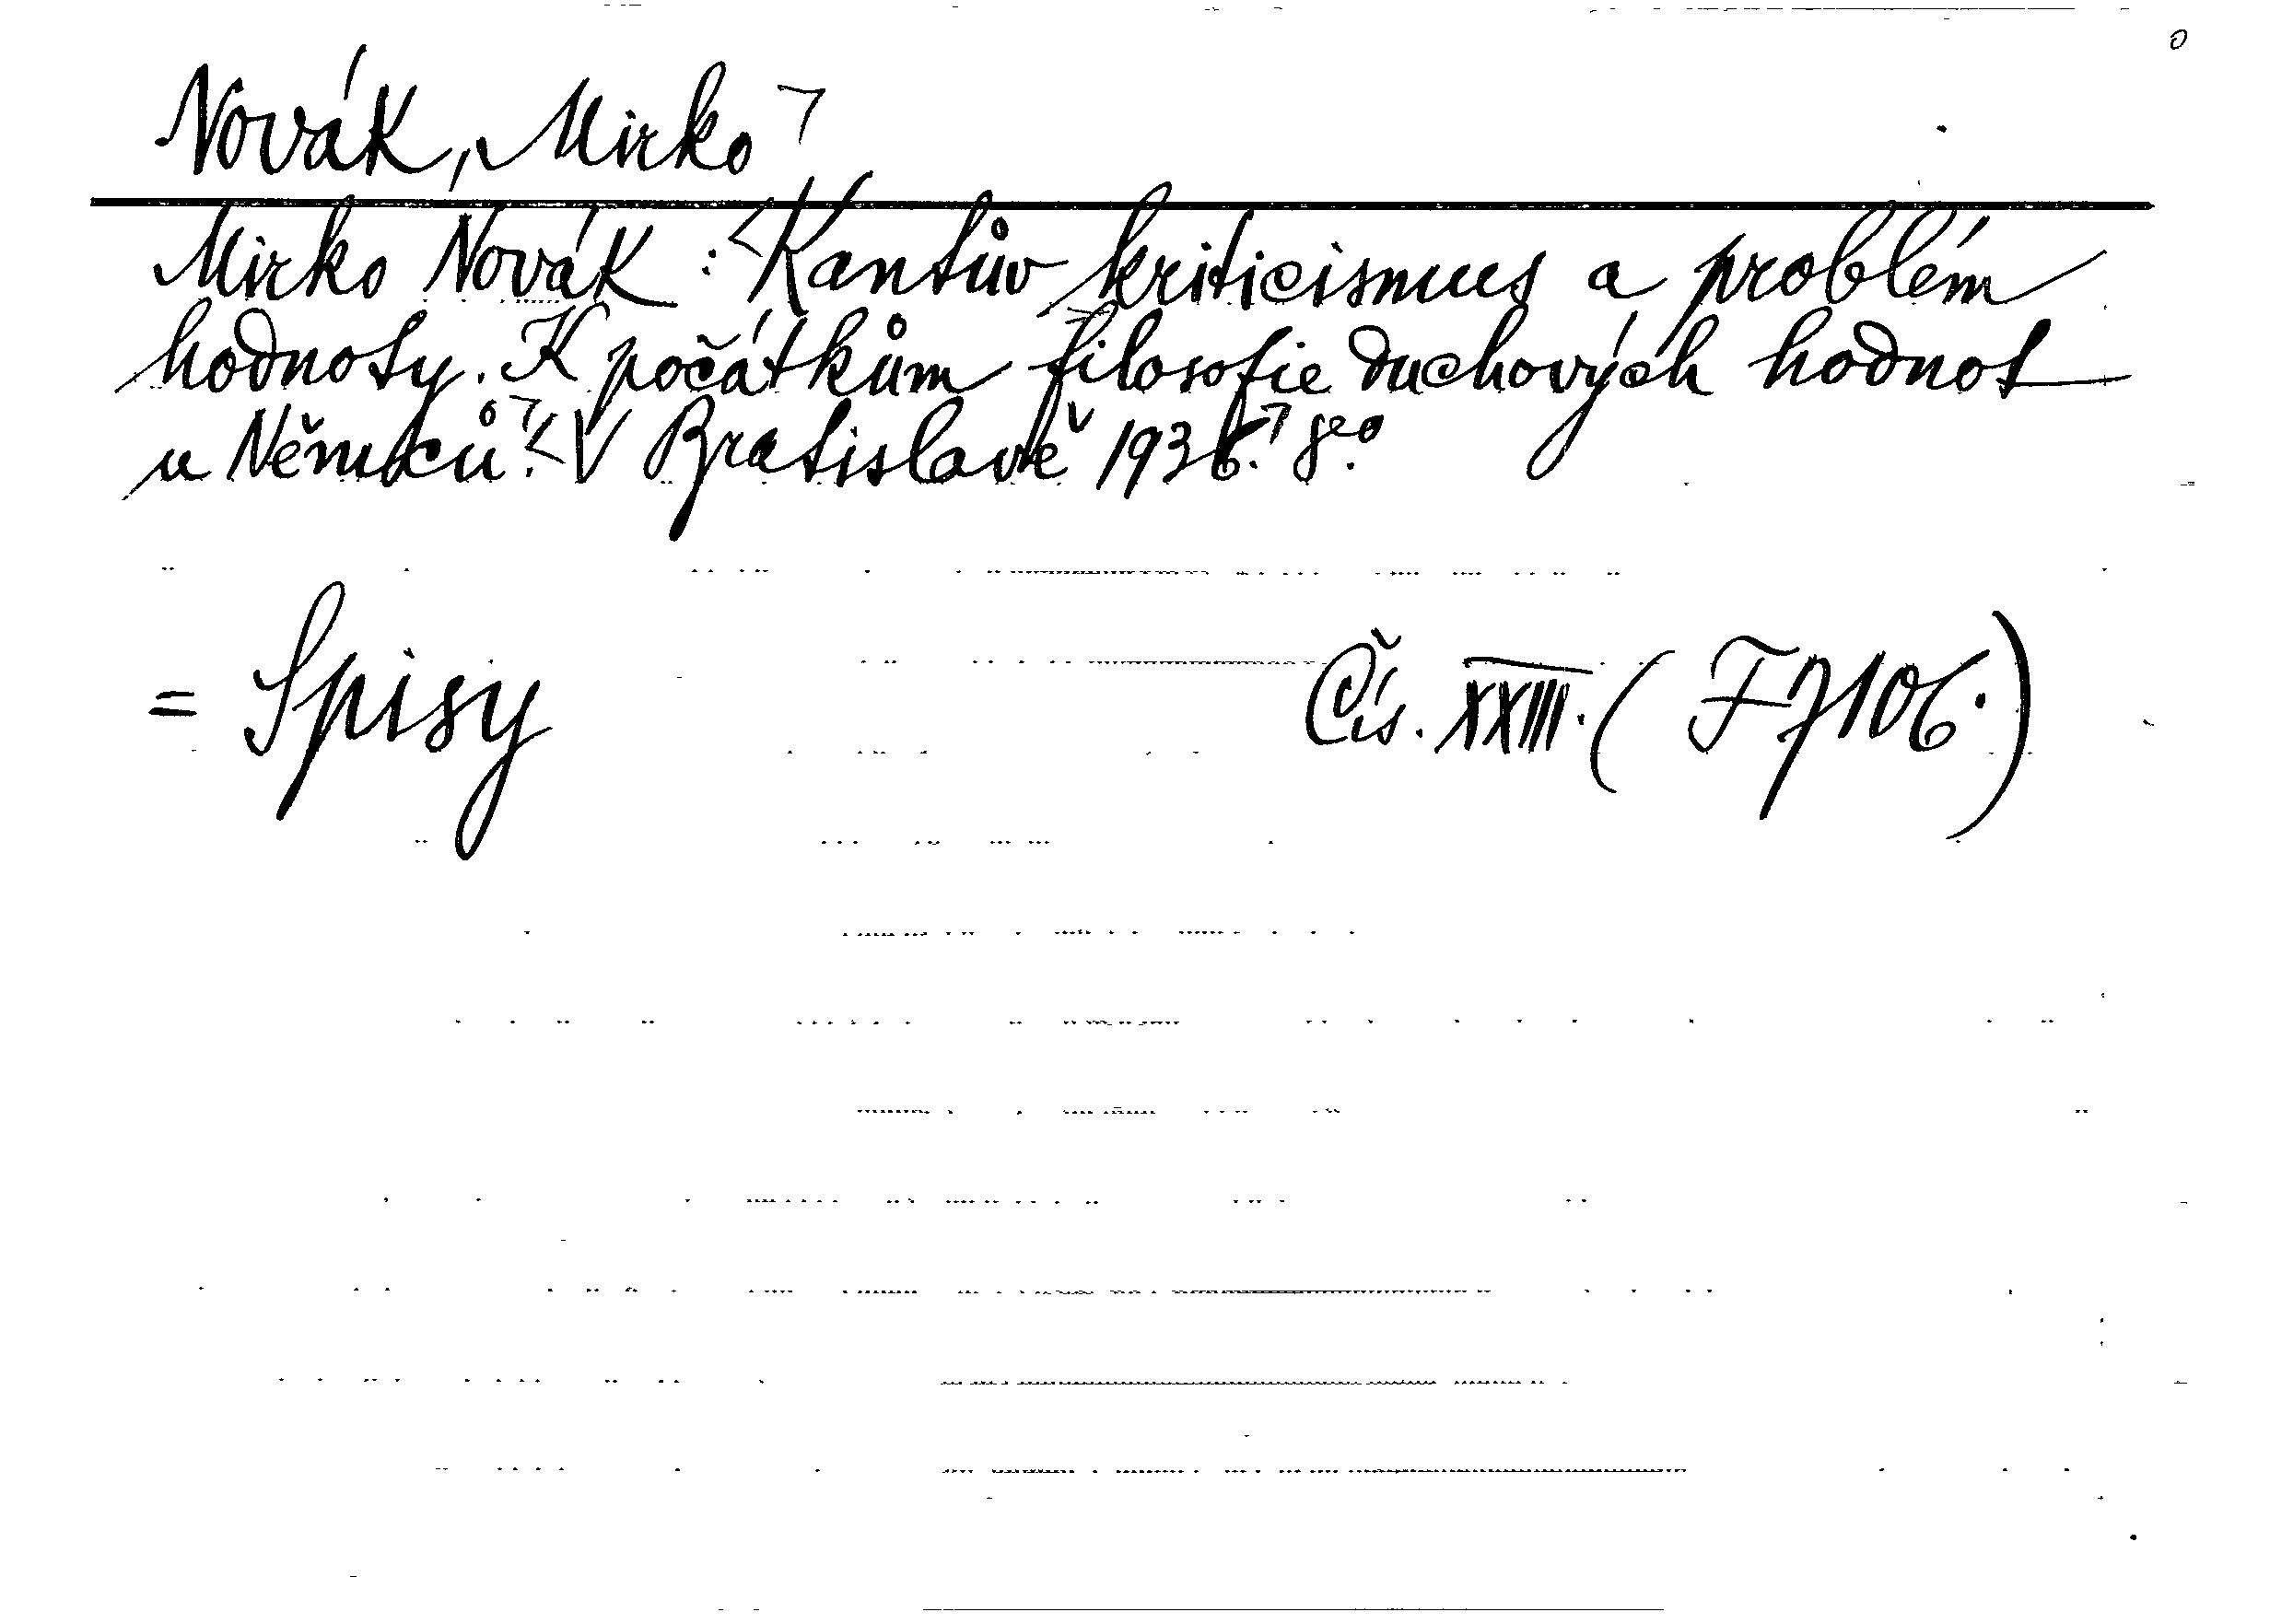 Novák, Mirko ¬
Mirko Novák : <Kantův kriticismus a problém
hodnoty. K počátkům filosofie duchových hodnot
u Němců.¬ <V Bratislavě 1936.¬ 8°.
= Spisy Čís. XXIII. (F7106.)